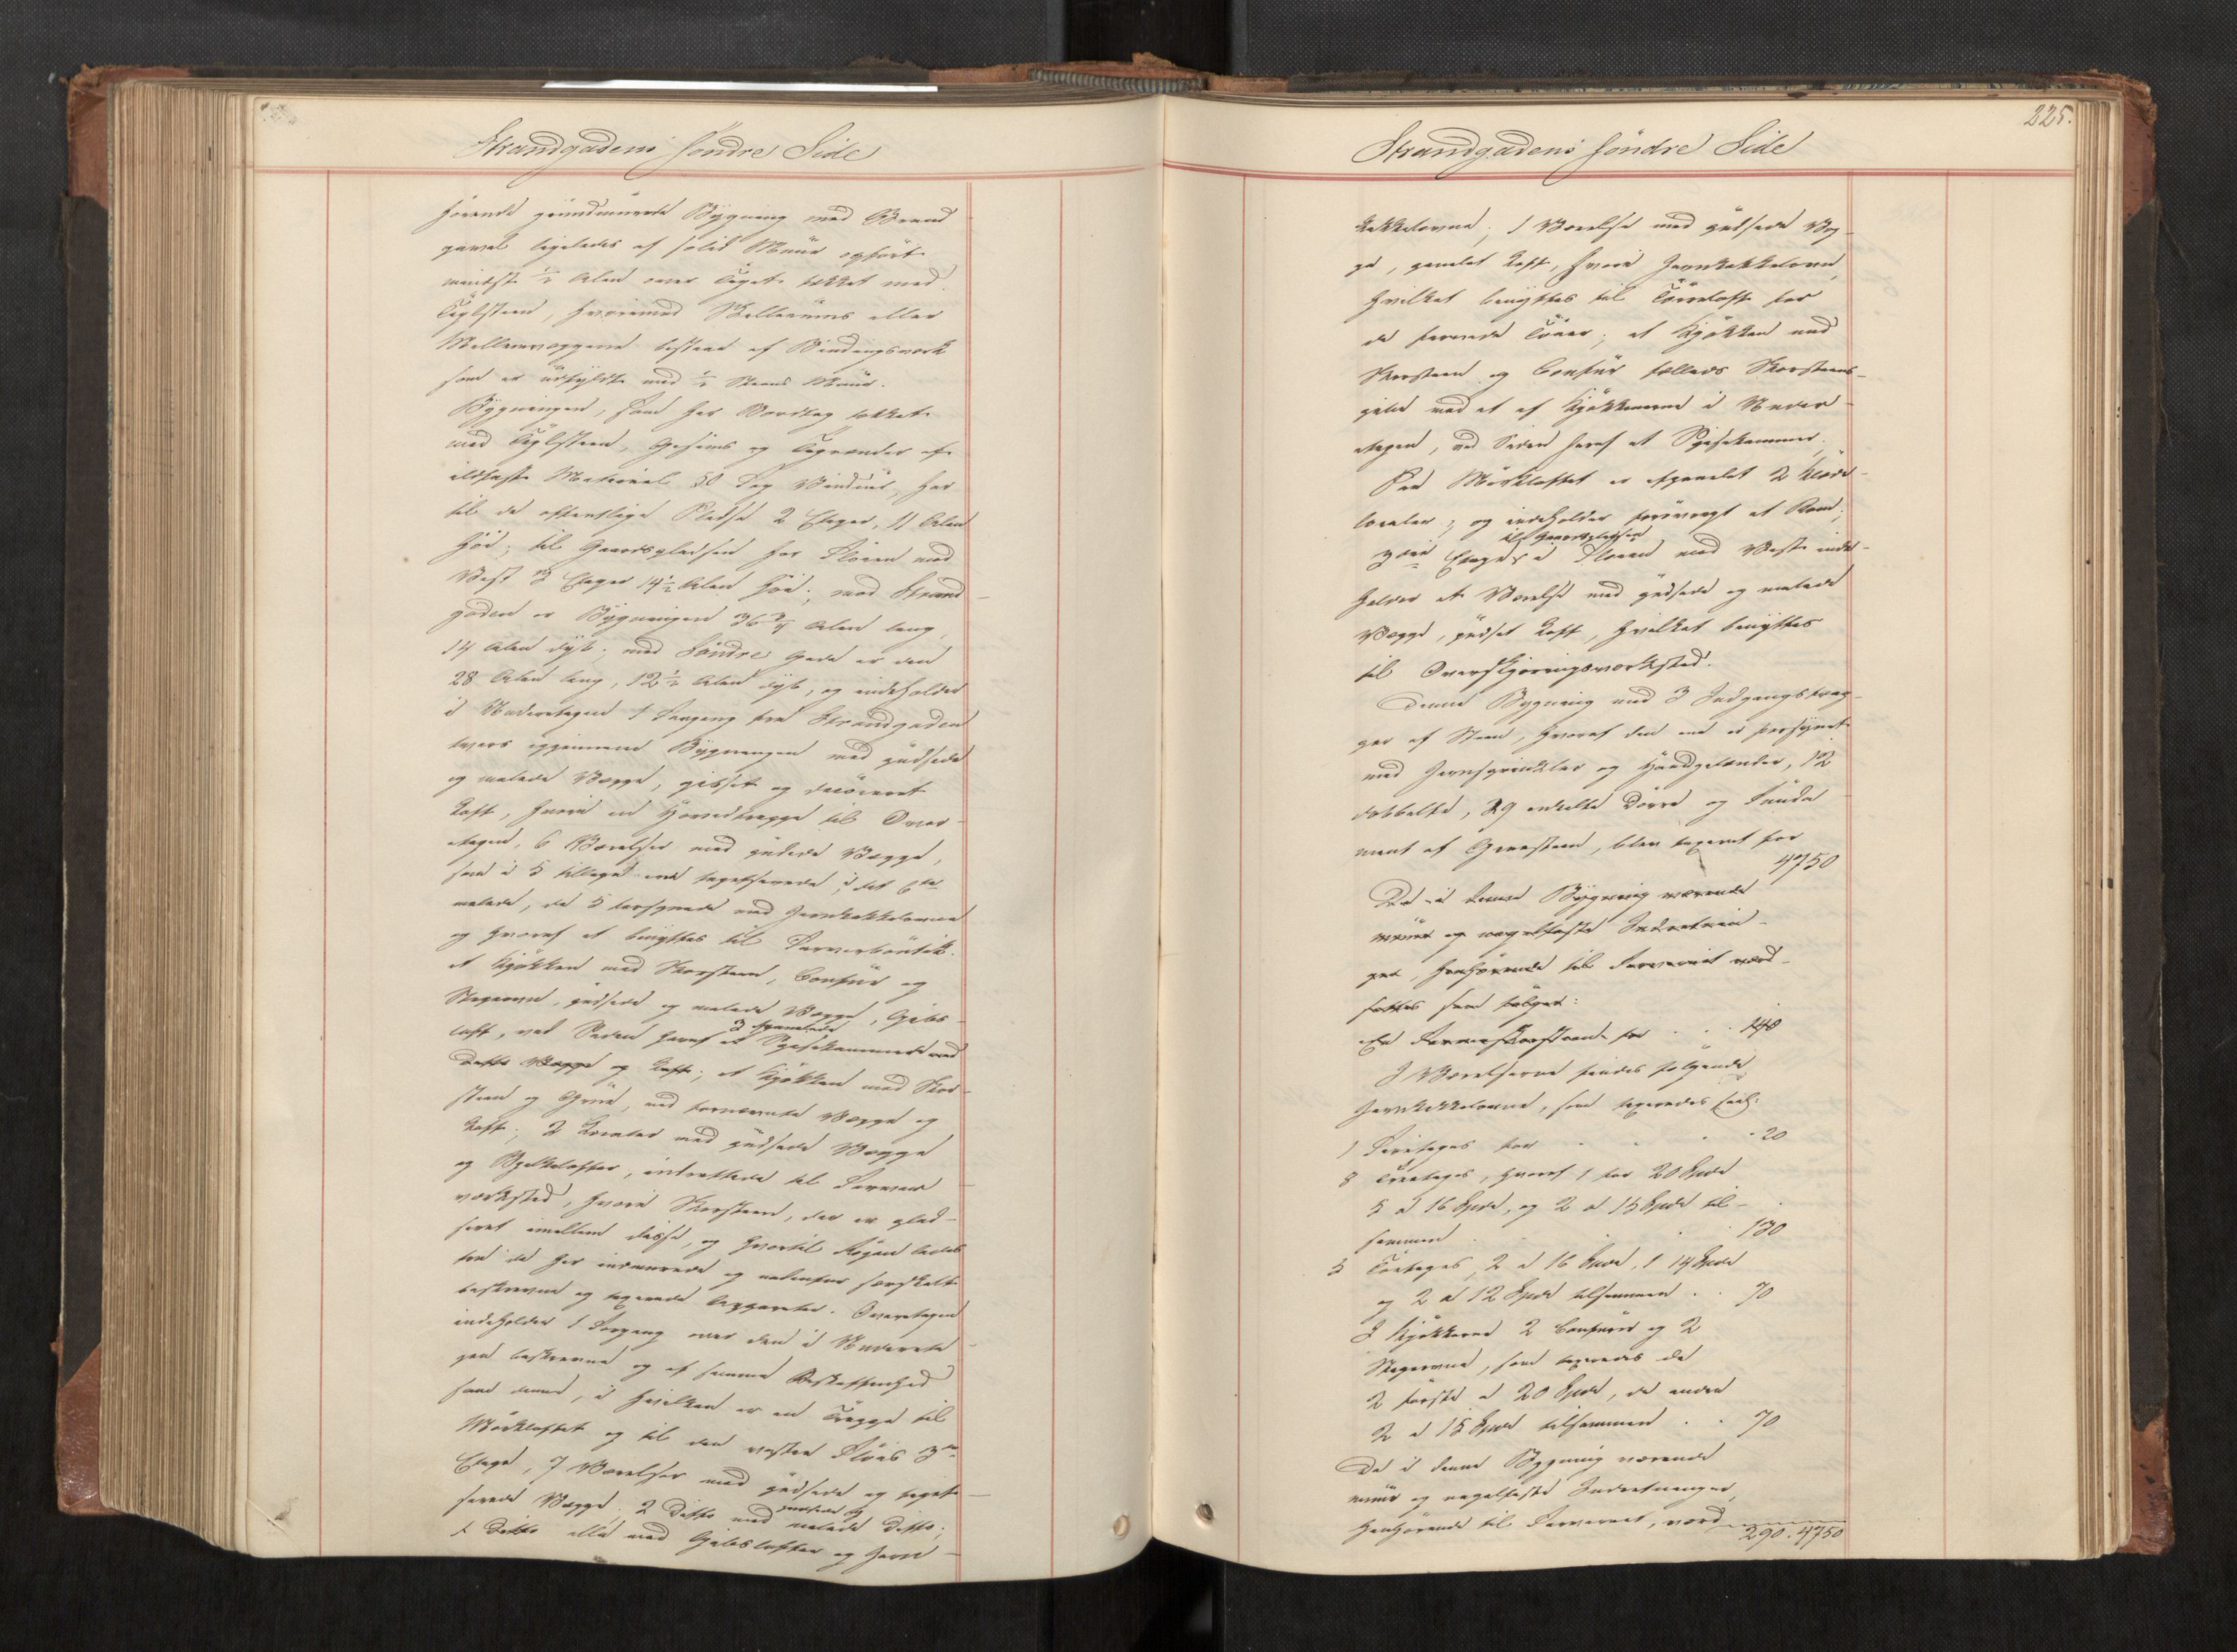 Strandgadens søndre Side
hørende grundmurede Bygning med Brand
gavel ligeledes af solid Muur opført
mindst ½ Alen over Taget tækket med
Taglsteen, hvorimod Skillerums eller
Mellemvæggene bestaae af Bindingsværk
som er udfyldte med ½ Steens Muur.
Bygningen, som har Bordtag tækket
med Taglsteen, Gesims og Tagrender af
ildfast Material 30 Fag Vinduer, har
til de offentlige Pladse 2 Etager, 11 Alen
høi; til Gaardspladsen har Fløien mod
Vest 3 Etager 14½ Alen høi; mod Strand
gaden er Bygningen 36¾ Alen lang,
14 Alen dyb; mod Søndre Gade er den
28 Alen lang, 12½ Alen dyb, og indeholder
i Underetagen 1 Forgang fra Strandgaden
tvers igjennem Bygningen med gibsede
og malede Vægge, gibset og decoreret
Loft, hvori en Hovedtrappe til Over-
etagen, 6 Værelser med gibsede Vægge,
som i 5 tillige ere tapetserede, i det 6te
malede, de 5 forsynede med Jernkakkelovne
og hvoraf et benyttes til Farverboutik.
et Kjøkken med Skorsteen, Comfur og
Stegeovn, gibsede og malede Vægge, Gibs-
loft, ved Siden heraf 3 panelede Spisekammere med
ditto Vægge og Loft; et Kjøkken med Skor-
steen og Grue, med fornævnte Vægge og
Loft; 2 Localer med gibsede Vægge
og Bjelkelofter, indrettede til Farver
værksted, hvori Skorsteen, der er plad-
seret imellem disse, og hvortil Røgen ledes
fra de her indmurede og nedenfor særskilt
beskrevne og taxerede Apparater. Overetagen
indeholder 1 Forgang over den i Undereta
gen beskrevne og af samme Beskaffenhed
som denne, i hvilken er en Trappe til
Mørkloftet og til den vestre Fløis 3die
Etage, 7 Værelser med gibsede og tapet-
serede Vægge; 2 ditto med gibsede og malede ditto;
1 ditto alle med Gibslofter og Jern-
225.
Strandgadens søndre Side
kakkelovne; 1 Værelse med gibsede Væg-
ge, panelet Loft, hvori Jernkakkelovn,
hvilket benyttes til Tørreloft for
de farvede Tøier; et Kjøkken med
Skorsteen og Comfur fælleds Skorsteens-
pibe med et af Kjøkkenerne i Under-
etagen, ved Siden heraf et Spisekammer.
Paa Mørkloftet er afpanelet 2 Klæde-
localer, og indeholder forøvrigt et Rum;
3die Etage til Gaardspladsen i Fløien mod Vest inde-
holder et Værelse med gibsede og malede
Vægge, gibset Loft, hvilket benyttes
til Overskjæringsværksted.
Denne Bygning med 3 Indgangstrap-
per af Steen, hvoraf den ene er forsynet
med Jernsprinkler og Haandgelænder, 12
dobbelte, 29 enkelte Dørre og Funda-
ment af Graasteen, blev taxeret for
4750
De i denne Bygning værende
muur og nagelfaste Indretnin-
ger, henhørende til Farveriet værd-
sættes som følger:
En Farveskorsteen for . . . 140
I Værelserne findes følgende
Jernkakkelovne, som taxeredes saal:
1 Fireetages for . . . 20
8 Treetages, hvoraf 1 for 20 Spd
5 a 16 Spd, og 2 a 15 Spd til-
sammen . . . 130
5 Toetages, 2 a 16 Spd, 1 14 Spd
og 2 a 12 Spd tilsammen . . 70
I Kjøkkenerne 2 Comfurer og 2
Stegeovne, som taxeredes de
2 første a 20 Spd, de andre
2 a 15 Spd tilsammen . . 70
De i denne Bygning værende
muur og nagelfaste Indretninger,
henhørende til Farveriet, værd
290. 4750